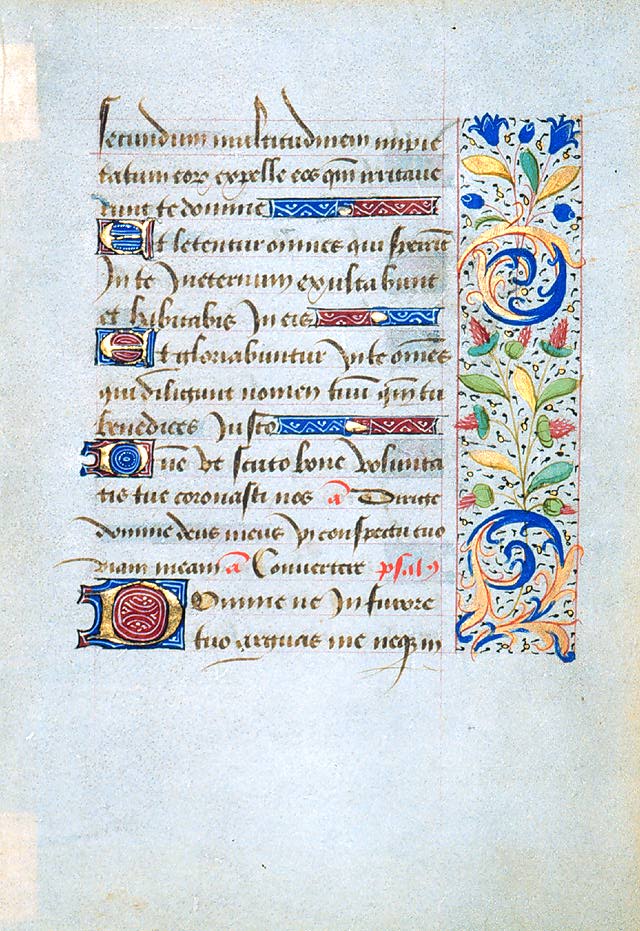 secundum multitudinem impie
tatum eorũ expelle eos qm̃ irritaue
runt te domine
Et letentur omnes qui sperãt
In te In eternum exultabunt
et habitabis In eis
Et gloriabuntur In te om̃es
qui diligunt nomen tuũ qm̃ tu
benedices Iusto
Dñe vt scuto bone volunta
tis tue coronasti nos a Dirige
domine deus meus In conspectu tuo
viam meam a Conuertere psalꝰ
Domine ne In furore
tuo arguas me neqꝫ in